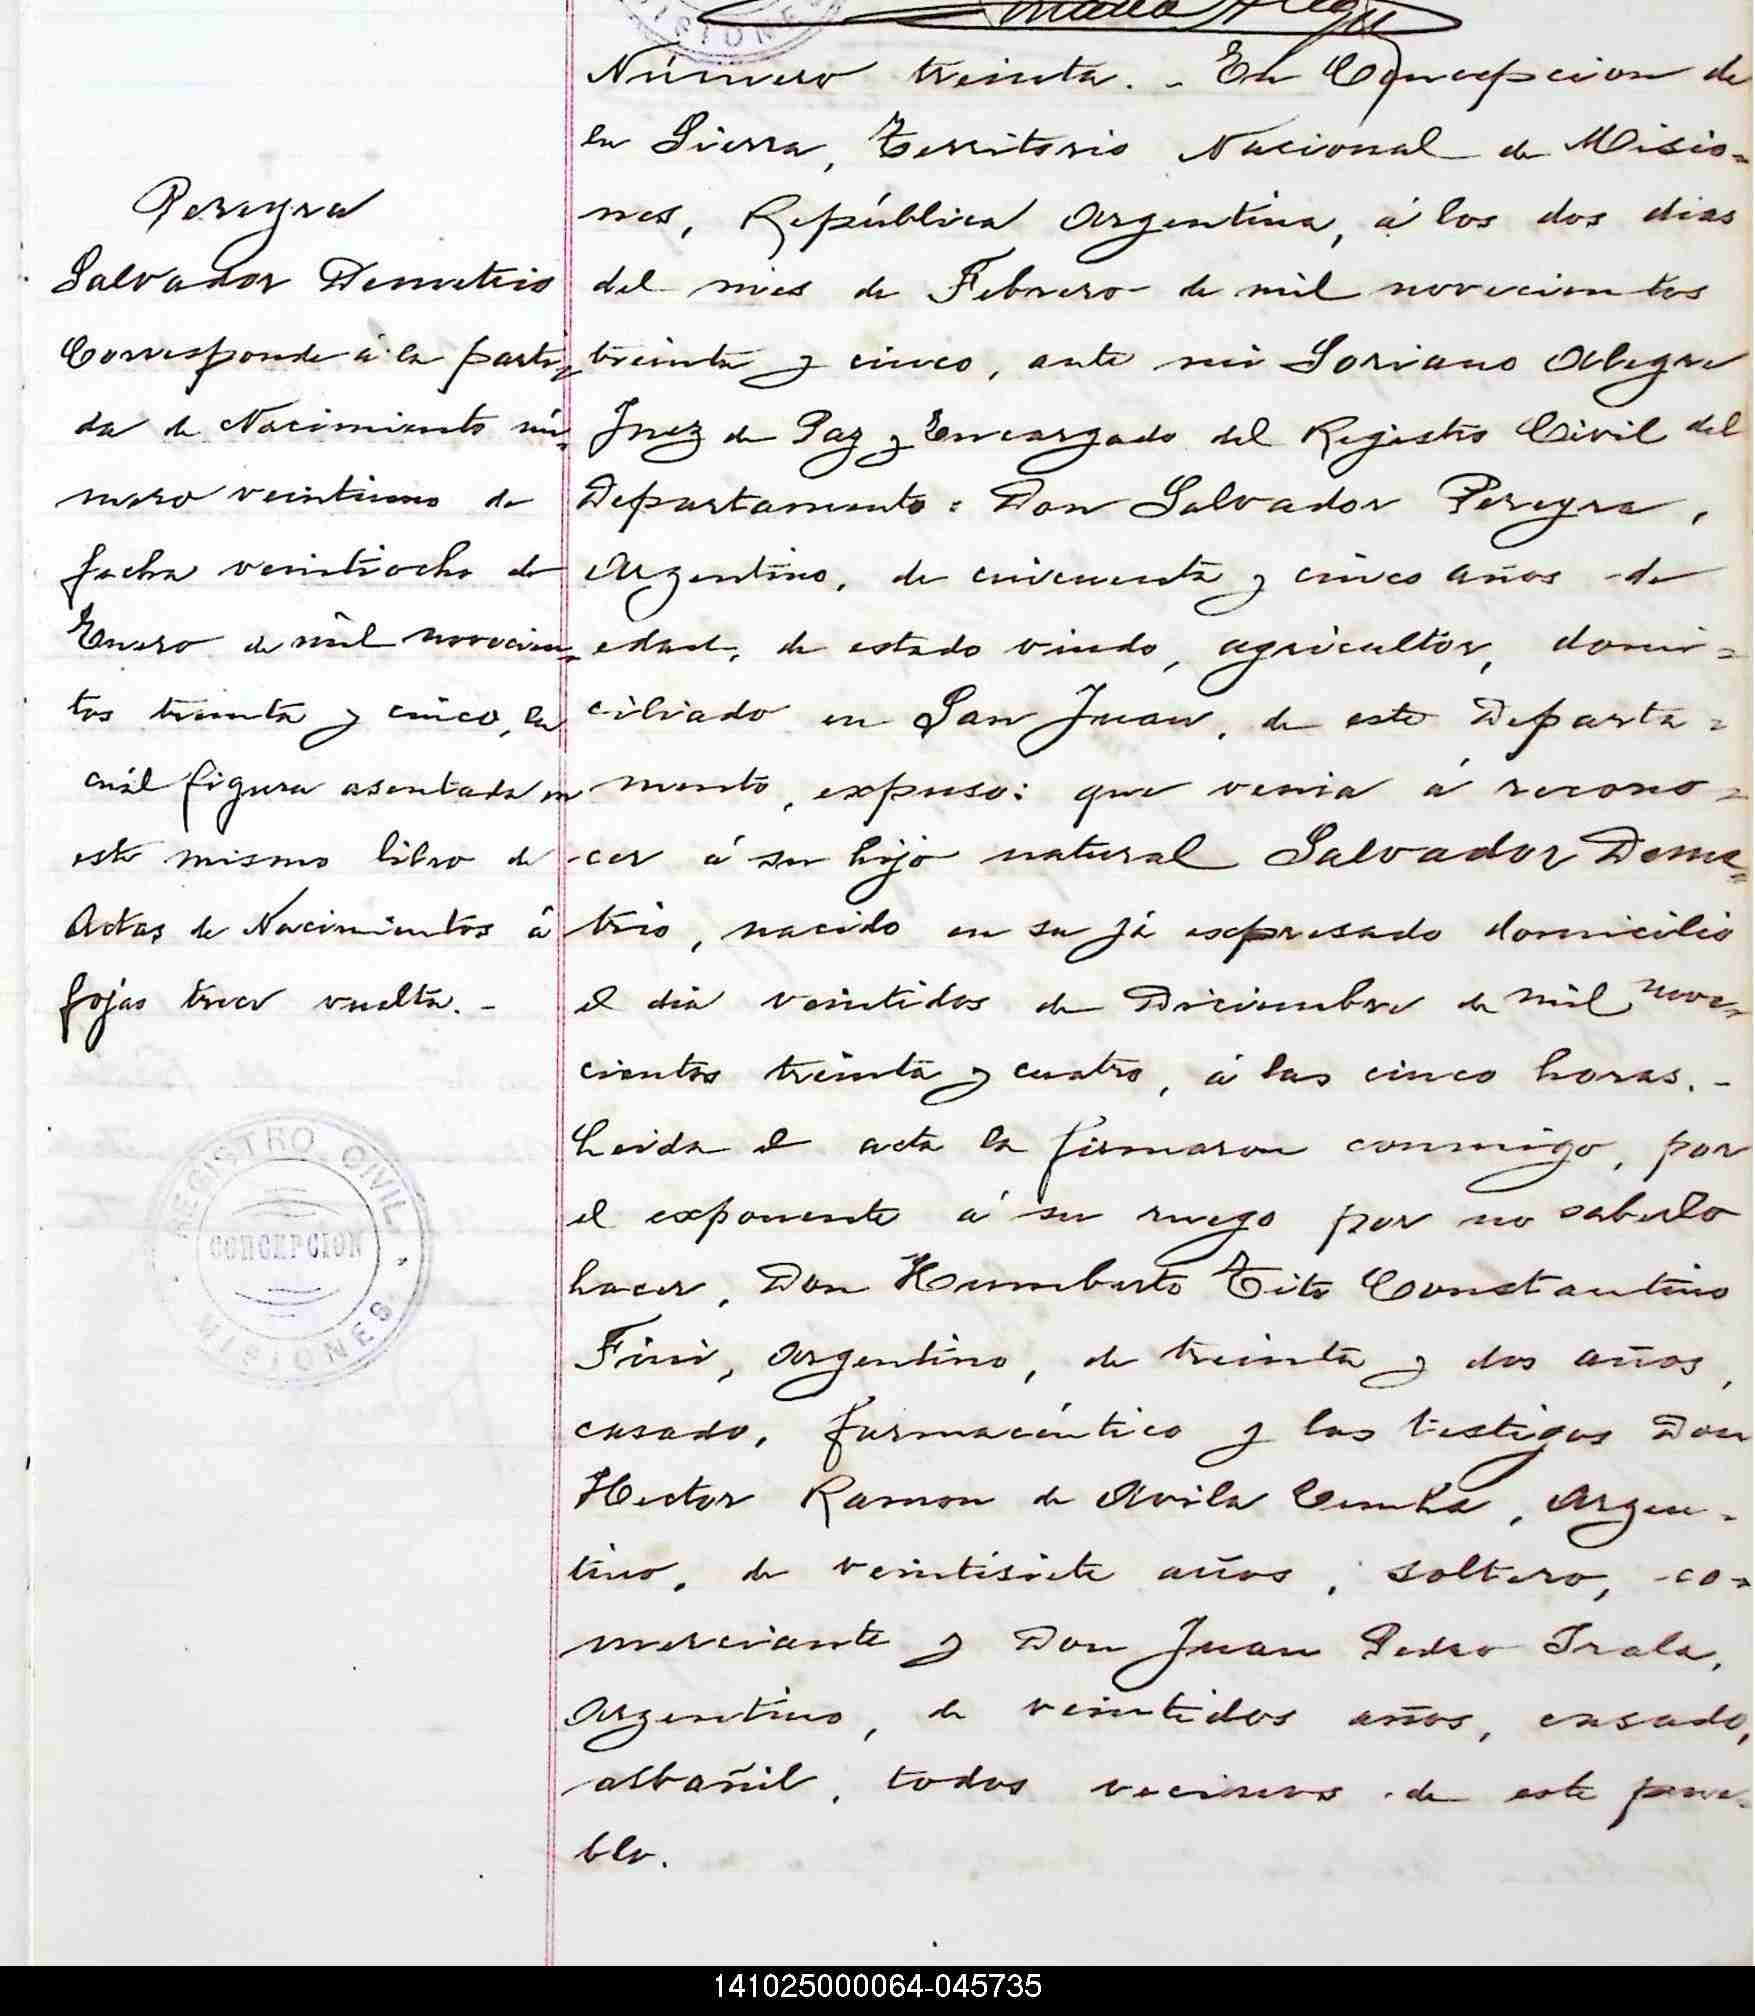 Número treinta. - En Concepcion de
la Sierra, Territorio Nacional de Misio=
nes, República Argentina, á los dos dias
del mes de Febrero de mil novecientos
treinta y cinco, ante mi Soriano Alegre
Juez de Paz y Encargado del Registro Civil del
Departamento = Don Salvador Pereyra,
Argentino, de cincuenta y cinco años de
edad, de estado viudo, agricultor, domi=
ciliado en San Juan, de este Departa=
mento, expuso: que venia á recono=
cer á su hijo natural Salvador Deme=
trio, nacido en su já expresado domicilio
el dia veintidos de Diciembre de mil nove=
cientos treinta y cuatro, á las cinco horas. -
Leida el acta la firmaron conmigo, por
el exponente á su ruego por no saberlo
hacer, Don Humberto Tito Constantino
Fini, Argentino, de treinta y dos años,
casado, farmacéutico y los testigos Don
Hector Ramon de Avila Cunha, Argen=
tino, de veintisiete años, soltero, co=
merciante y Don Juan Pedro Irala,
Argentino, de veintidos años, casado,
albañil, todos vecinos de este pue=
blo.
Pereyra
Salvador Demetrio
Corresponde á la parti=
da de Nacimiento nú=
mero veintiuno de
fecha veintiocho de
Enero de mil novecien=
tos treinta y cinco, la
cuál figura asentada en
este mismo libro de
Actas de Nacimientos á
fojas trece vuelta. -
REGISTRO CIVIL
CONCEPCION
MISIONES
141025000064-045735